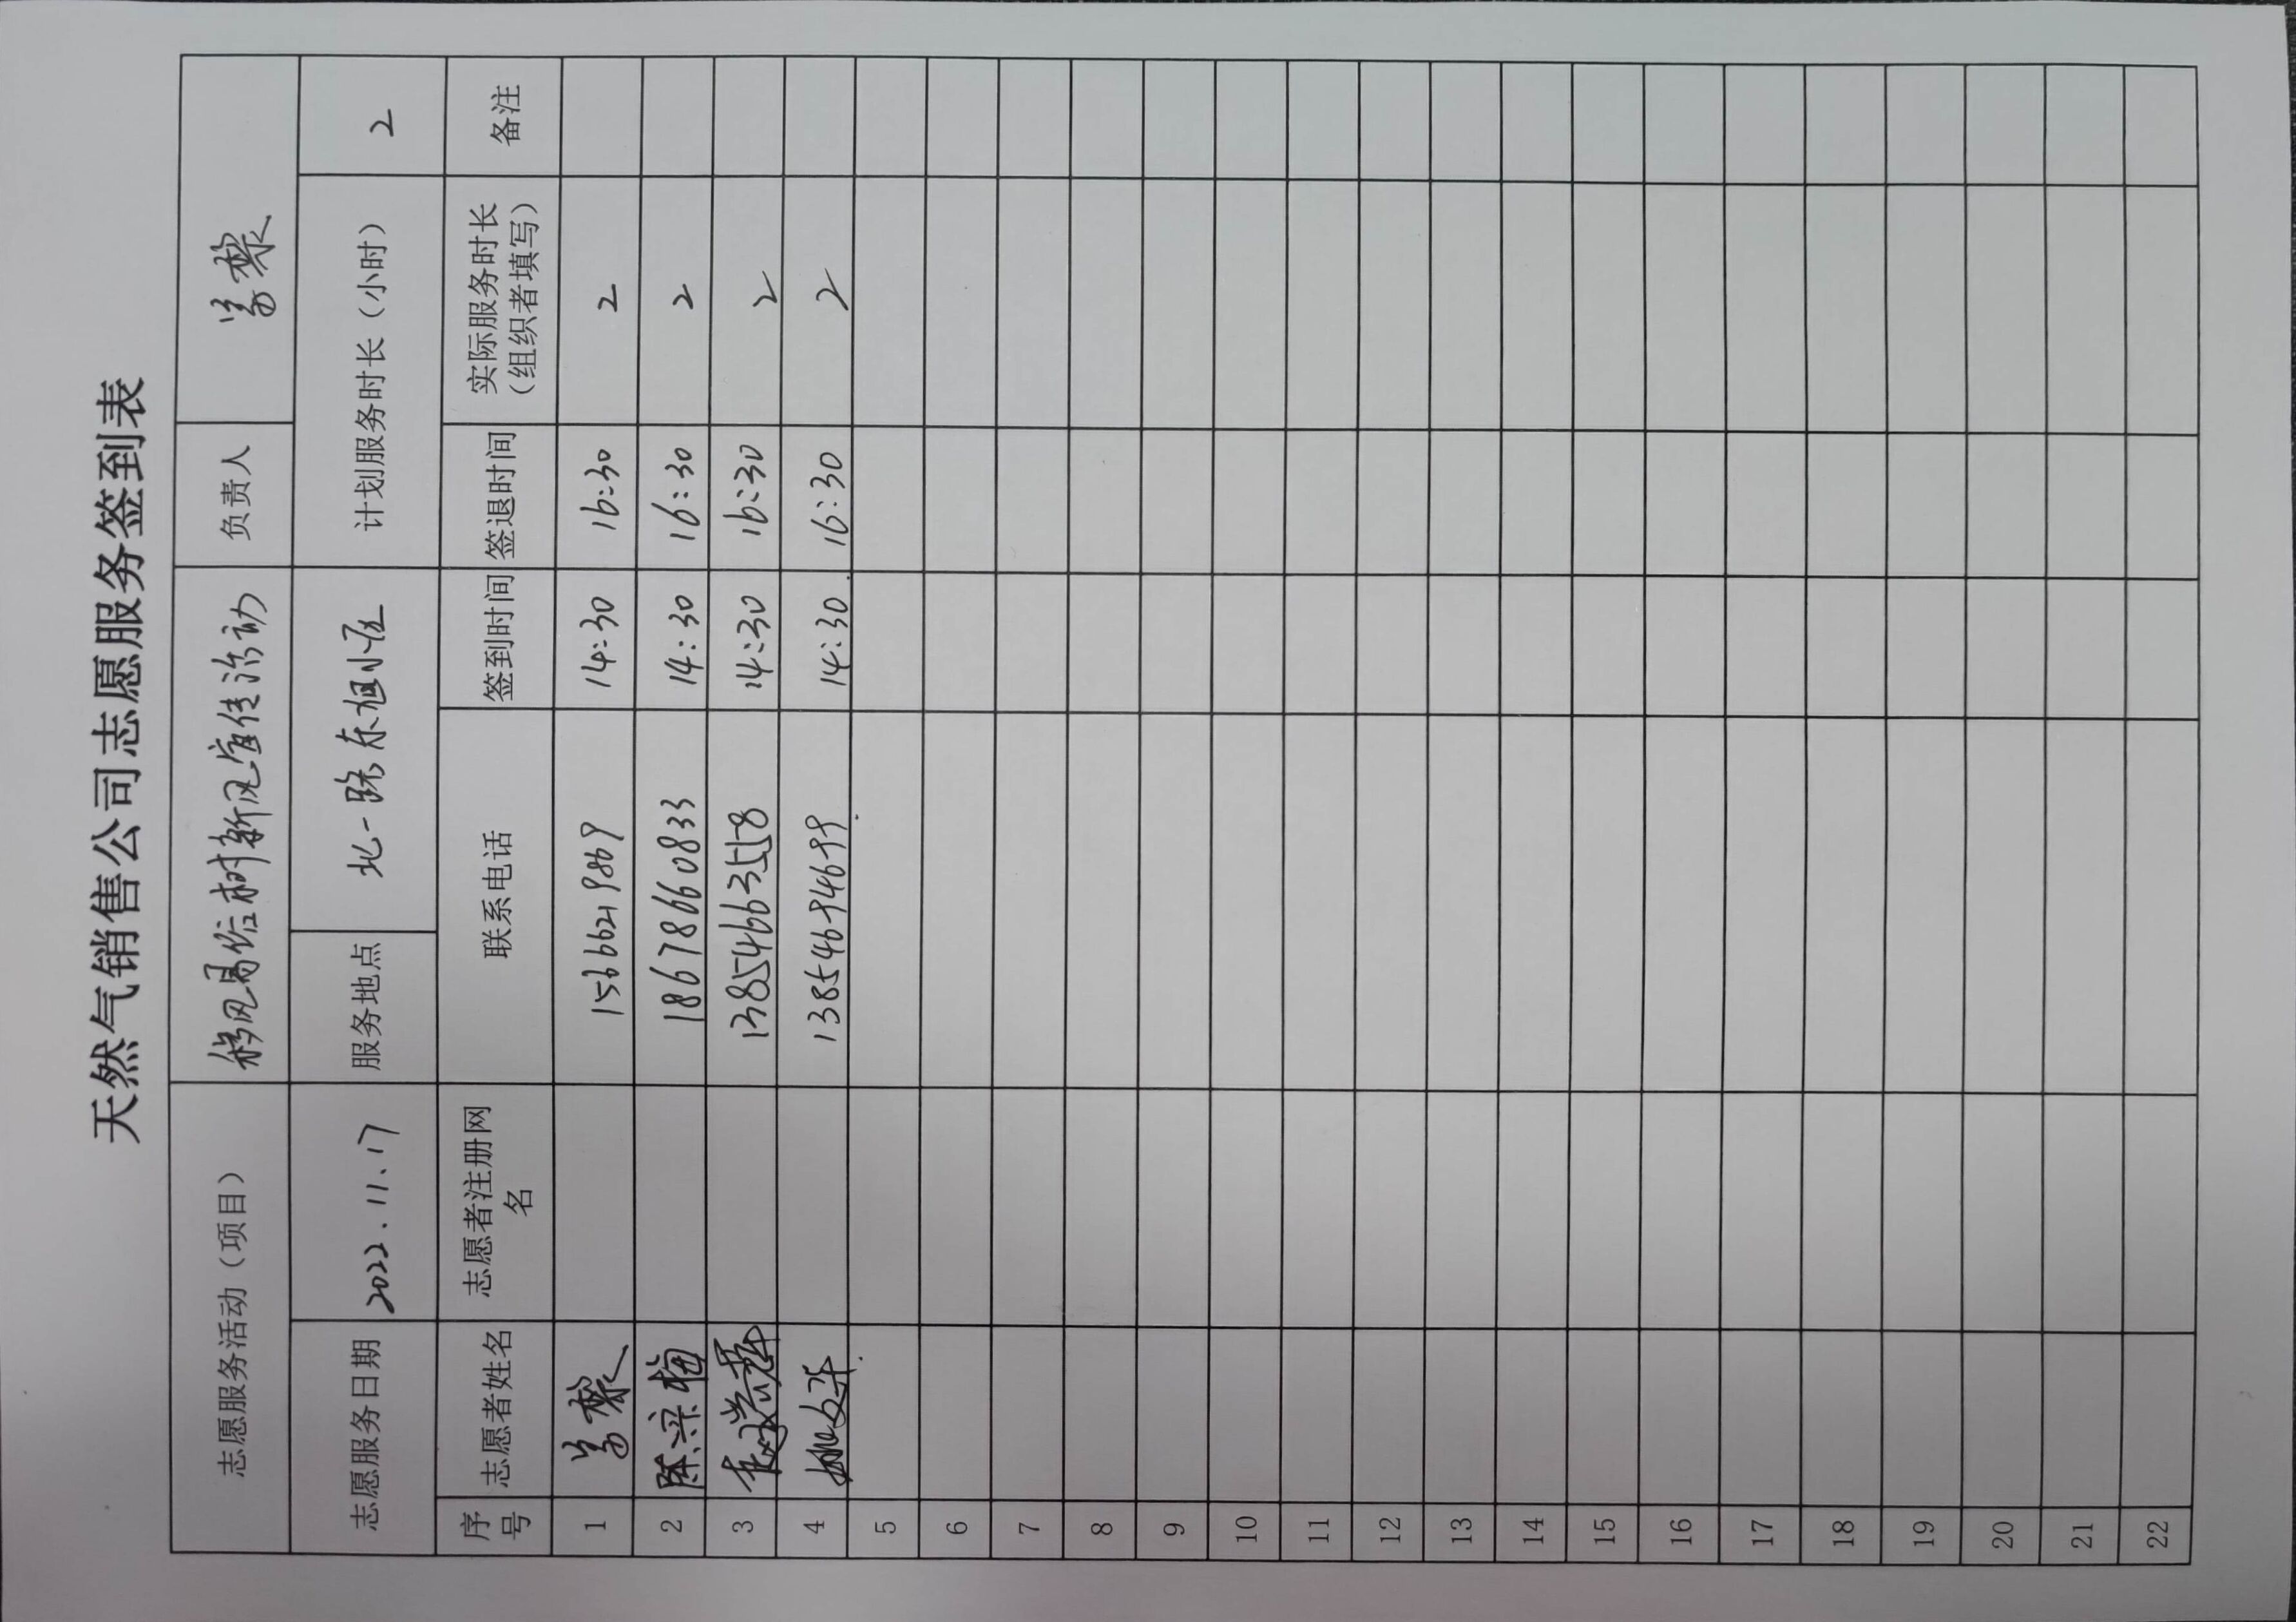 天然气销售公司志愿服务签到表
志愿服务活动（项目） 移风易俗树新风宣传活动 负责人
志愿服务日期 2022.11.17 服务地点 北一路东旭小区 计划服务时长（小时） 2
序号 志愿者姓名 志愿者注册网名 联系电话 签到时间 签退时间 实际服务时长（组织者填写） 备注
1 15666219869 14:30 16:30 2
2 陈梁梅 18678660833 14:30 16:30 2
3 13854663558 14:30 16:30 2
4 14:30 16:30 2
5
6
7
8
9
10
11
12
13
14
15
16
17
18
19
20
21
22